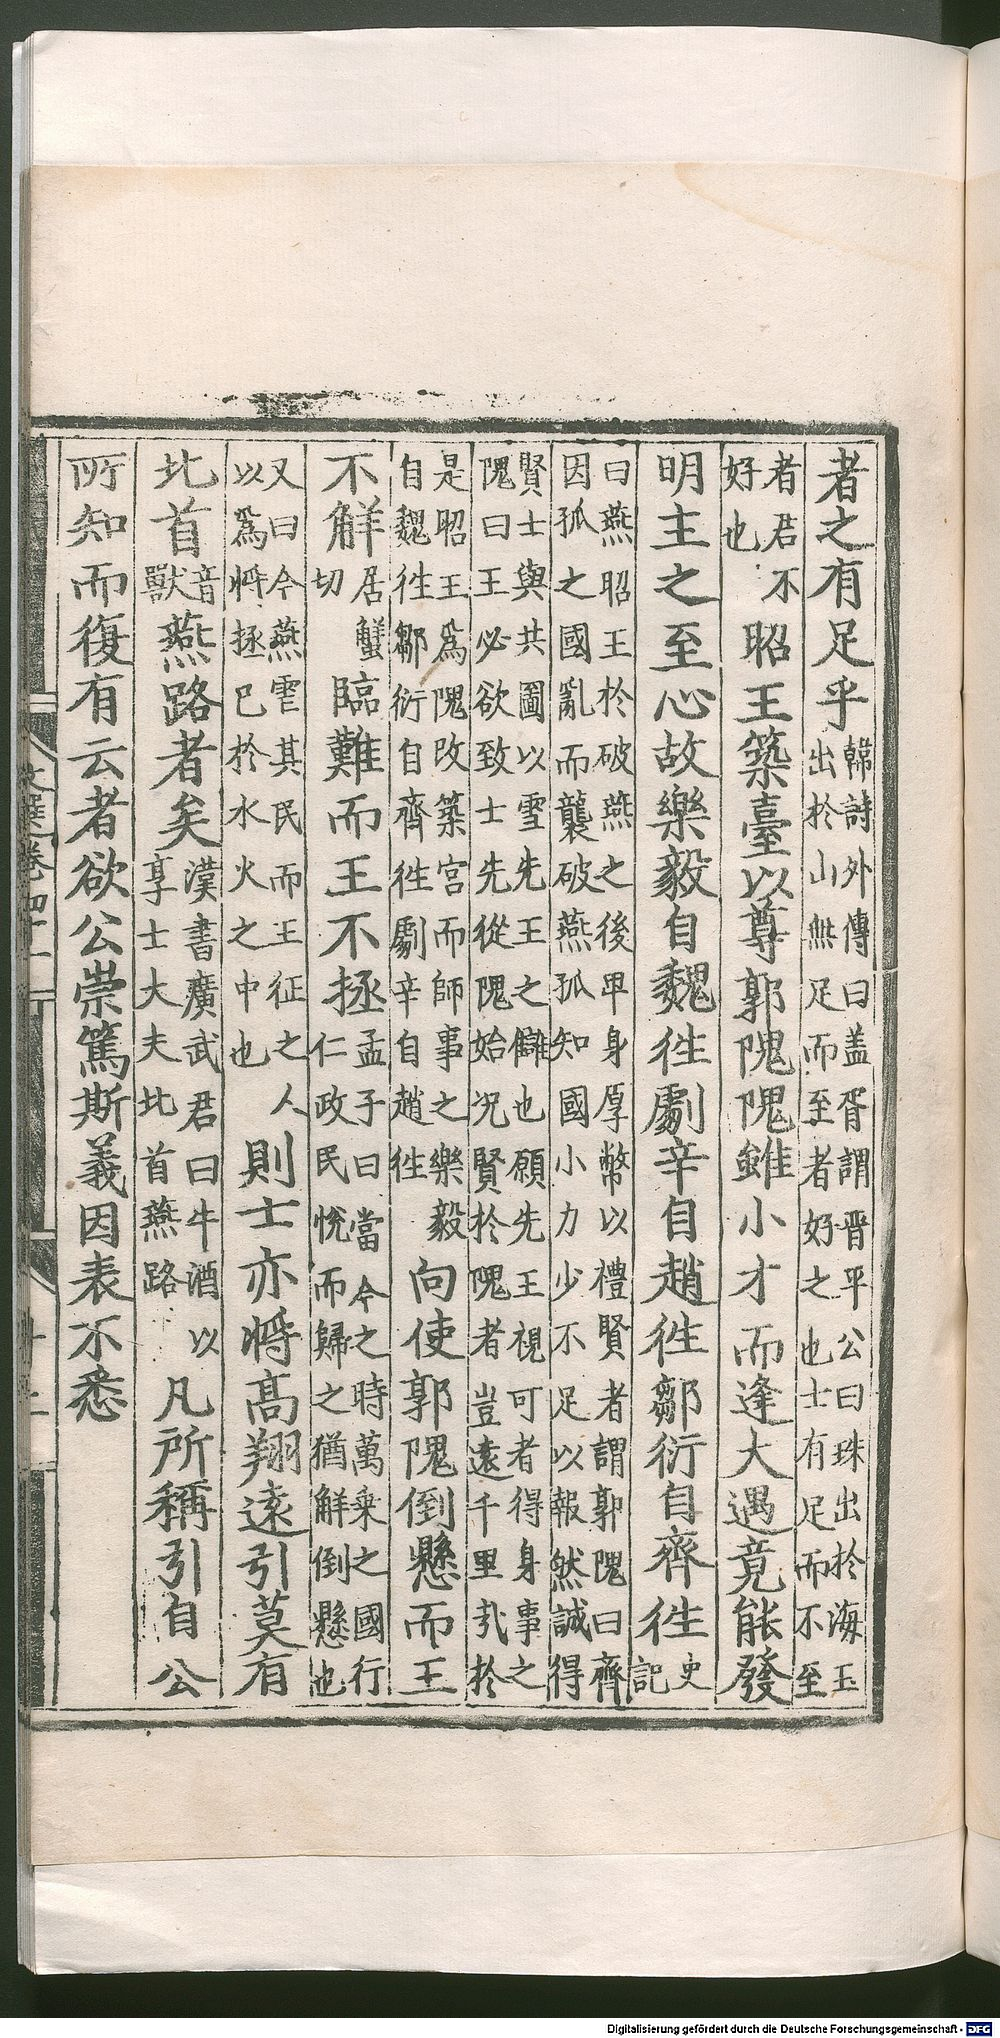 者之有足乎韓詩外傳曰盖胥謂晋平公曰珠出於海玉出於山無足而至者好之也士有足而不至
者君不好也昭王築臺以尊郭隗隗雖小才而逢大遇竟能發
明主之至心故樂毅自魏徃劇辛自趙徃鄒衍自齊徃史記
曰燕昭王於破燕之後卑身厚幣以禮賢者謂郭隗曰齊因孤之國亂而襲破燕孤知國小力少不足以報然誠得
賢士與共圖以雪先王之讎也願先王視可者得身事之隗曰王必欲致士先從隗始况賢於隗者豈遠千里㢤於
是昭王爲隗改築宮而師事之樂毅自魏徃鄒衍自齊徃劇辛自趙徃向使郭隗倒懸而王
不解居蟹切臨難而王不拯孟子曰當今之時萬乗之國行仁政民悅而歸之猶解倒懸也
又曰今燕雪其民而王征之人以爲將拯已於水火之中也則士亦將高翔遠引莫有
北首音獸燕路者矣漢書廣武君曰牛酒以享士大夫北首燕路凡所稱引自公
所知而復有云者欲公崇篤斯義因表不悉
文選卷四十一
Digitalisierung gefördert durch die Deutsche Forschungsgemeinschaft - DFG